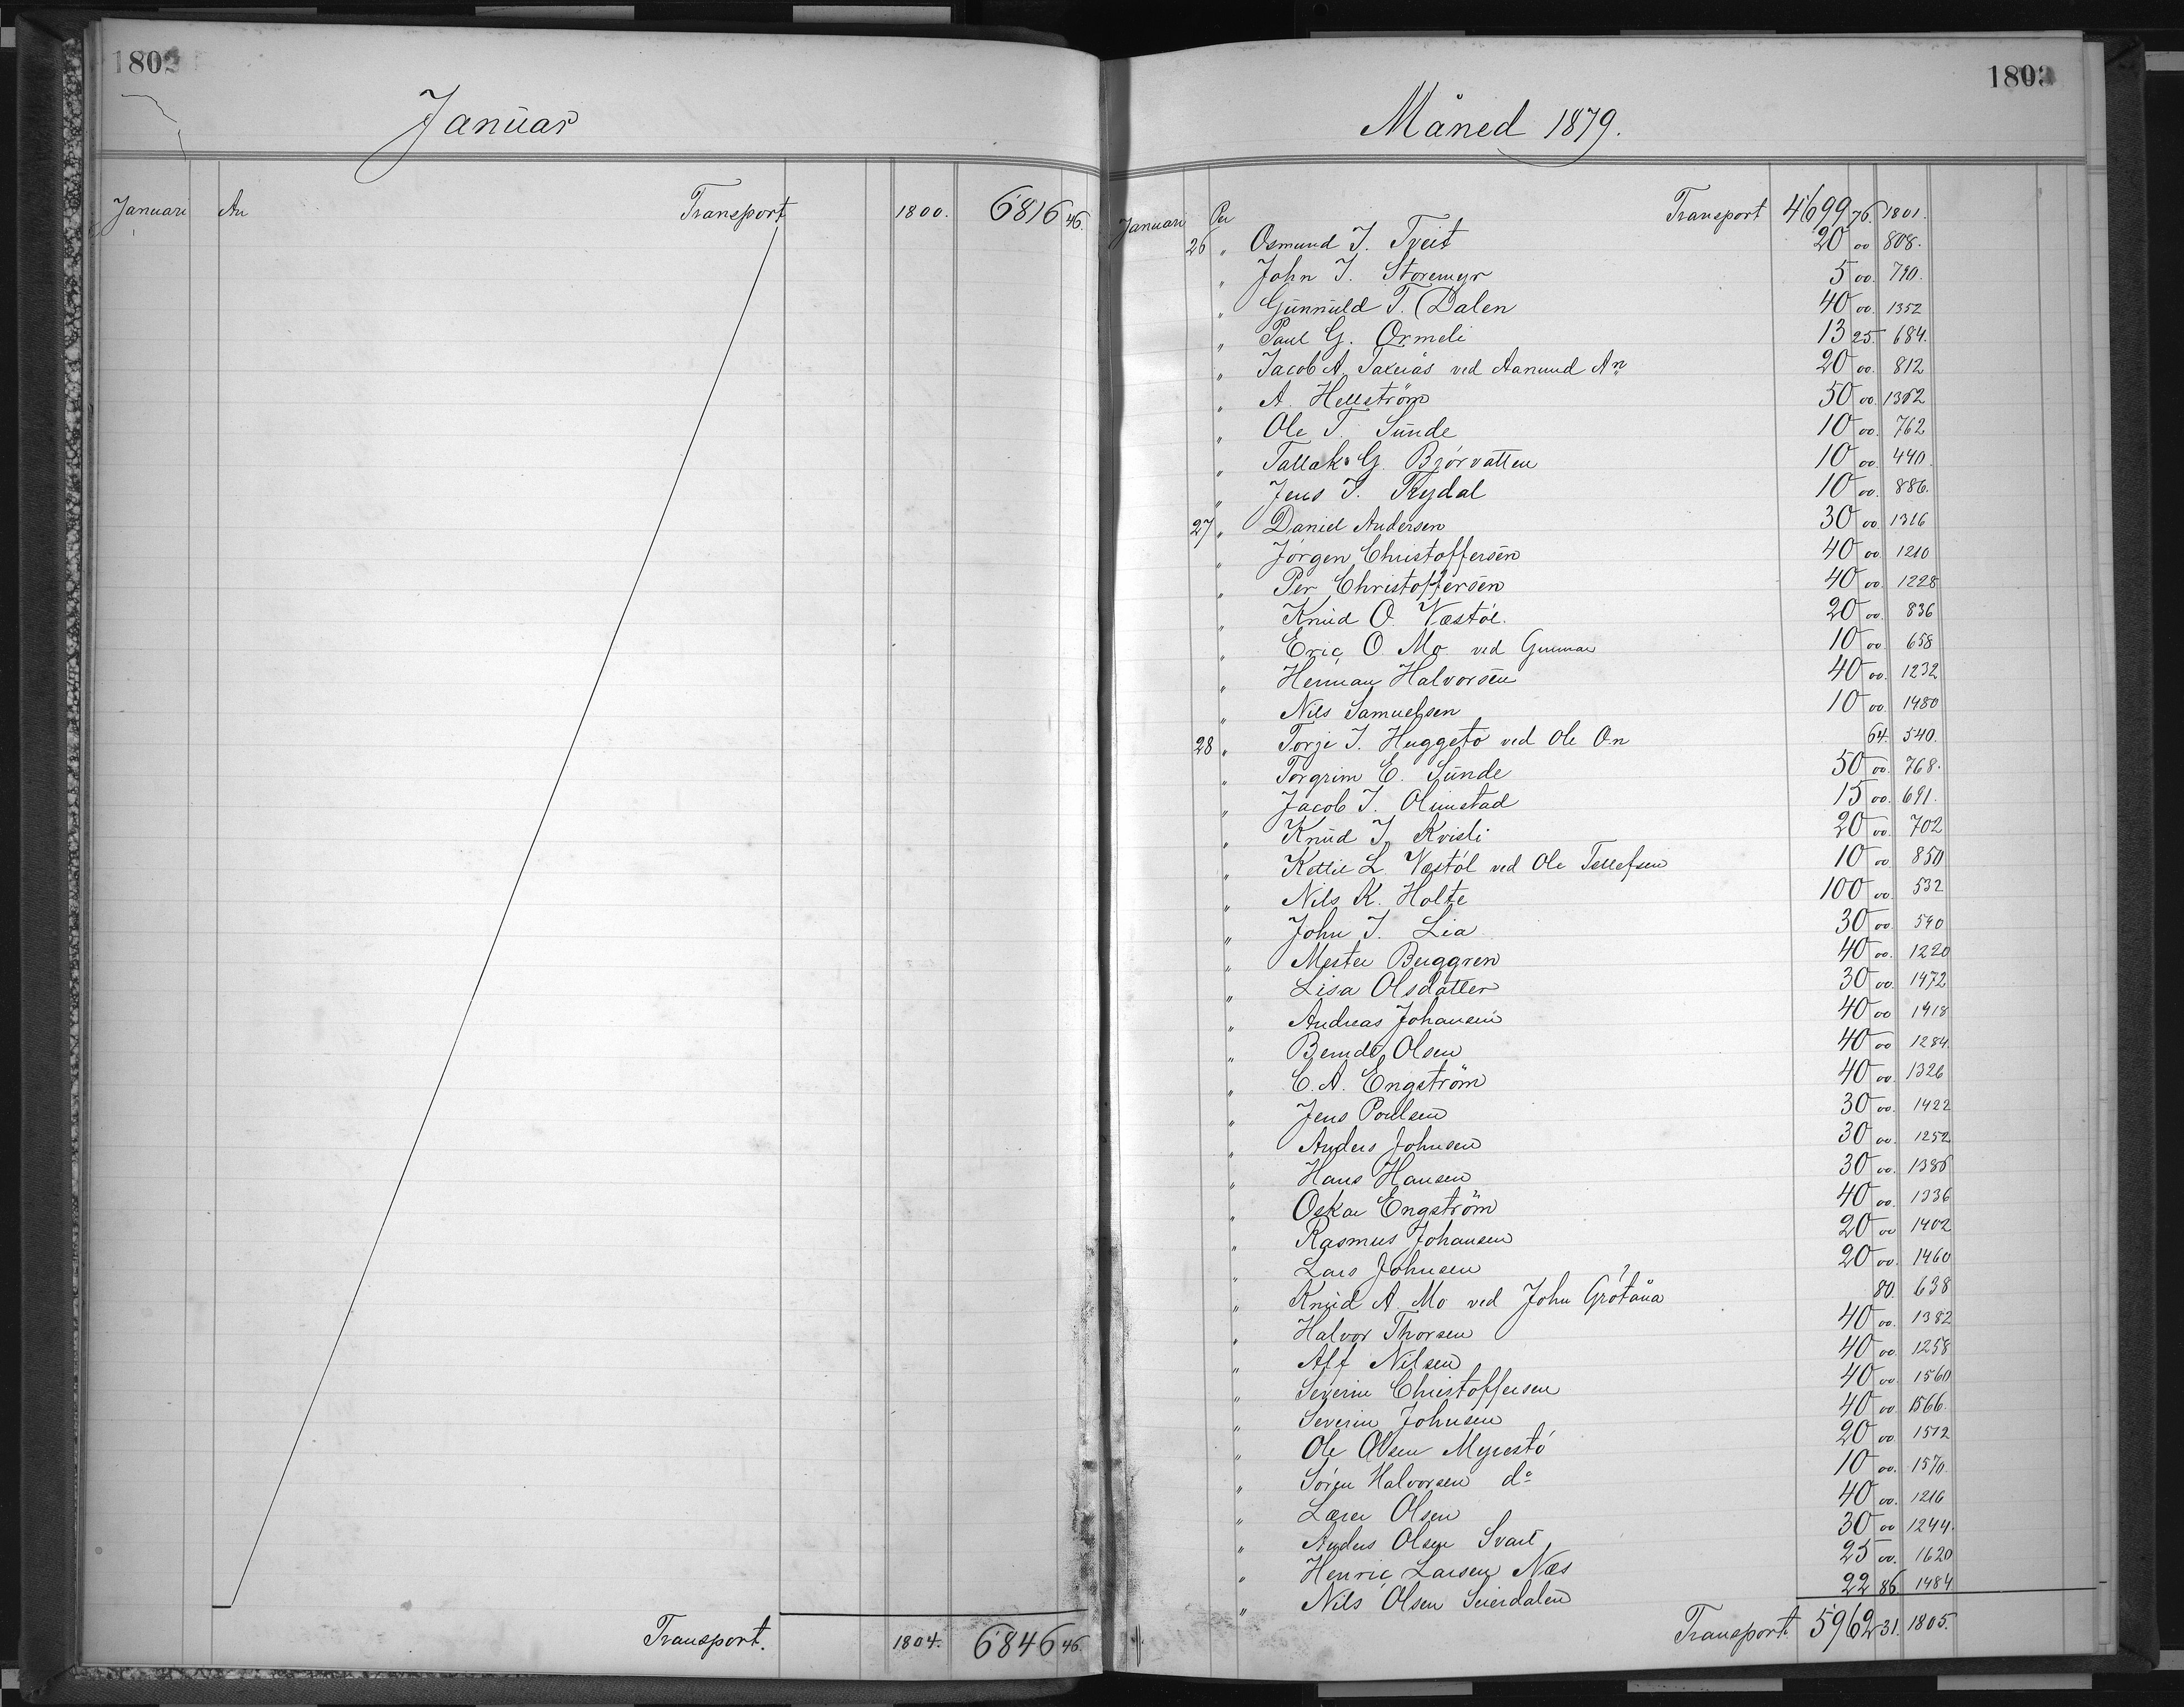 1802
Januar
Januari An Transport 1800. 6816 46.
Transport. 1804. 6846 46.
1803
Måned 1879.
Januari Per Transport 4699 76. 1801.
26 " Osmund J. Treit 20 00 808.
" John J. Storemyr 5 00. 790.
" Gunnuld T. Dalen 40 00. 1352
" Paul G. Ormeli 13 25. 684.
" Jacob A. Taxeiås ved Aanund An 20 00. 812
" A. Hellström 50 00. 1362
" Ole T. Sunde 10 00. 762
" Tallak G. Bjørvatten 10 00. 440.
" Jens T. Trydal 10 00. 886.
27 " Daniel Andersen 30 00. 1316
" Jørgen Christoffersen 40 00. 1210
" Per Christoffersen 40 00. 1228
" Knud O. Væstøl. 20 00. 836
" Eric O. Mo ved Gunnar 10 00. 658
" Herman Halvorsen 40 00. 1232
" Nils Samuelsen 10 00. 1480
28 " Torje J. Huggeto ved Ole On 64. 540.
" Torgrim E. Sunde 50 00. 768.
" Jacob J. Olimstad 15 00. 691.
" Knud J. Kvisli 20 00. 702
" Kettil L. Væstøl ved Ole Tellefsen 10 00 850
" Nils K. Holte 100 00. 532
" John J. Lia 30 00. 590
" Mester Berggren 40 00. 1220
" Lisa Olsdatter 30 00. 1472
" Andreas Johansen 40 00 1418
" Berndt Olsen 40 00 1284.
" C. A. Engström 40 00. 1326
" Jens Poulsen 30 00. 1422
" Anders Johnsen 30 00. 1252
" Hans Hansen 30 00. 1386
" Oskar Engström 40 00. 1336
" Rasmus Johansen 20 00 1402
" Lars Johnsen 20 00. 1460
" Knud A. Mo ved John Grøtåna 80. 638
" Halvor Thorsen 40 00. 1382
" Alf Nilsen 40 00 1258
" Severin Christoffersen 40 00 1560
" Severin Johnsen 40 00 1566.
" Ole Olsen Myrestö 20 00. 1512
" Søren Halvorsen do 10 00. 1570.
" Lærer Olsen 40 00. 1216
" Anders Olsen Svart 30 00 1244.
" Henric Larsen Næs 25 00. 1620
" Nils Olsen Seierdalen 22 86. 1484
Transport 5962 31. 1805.